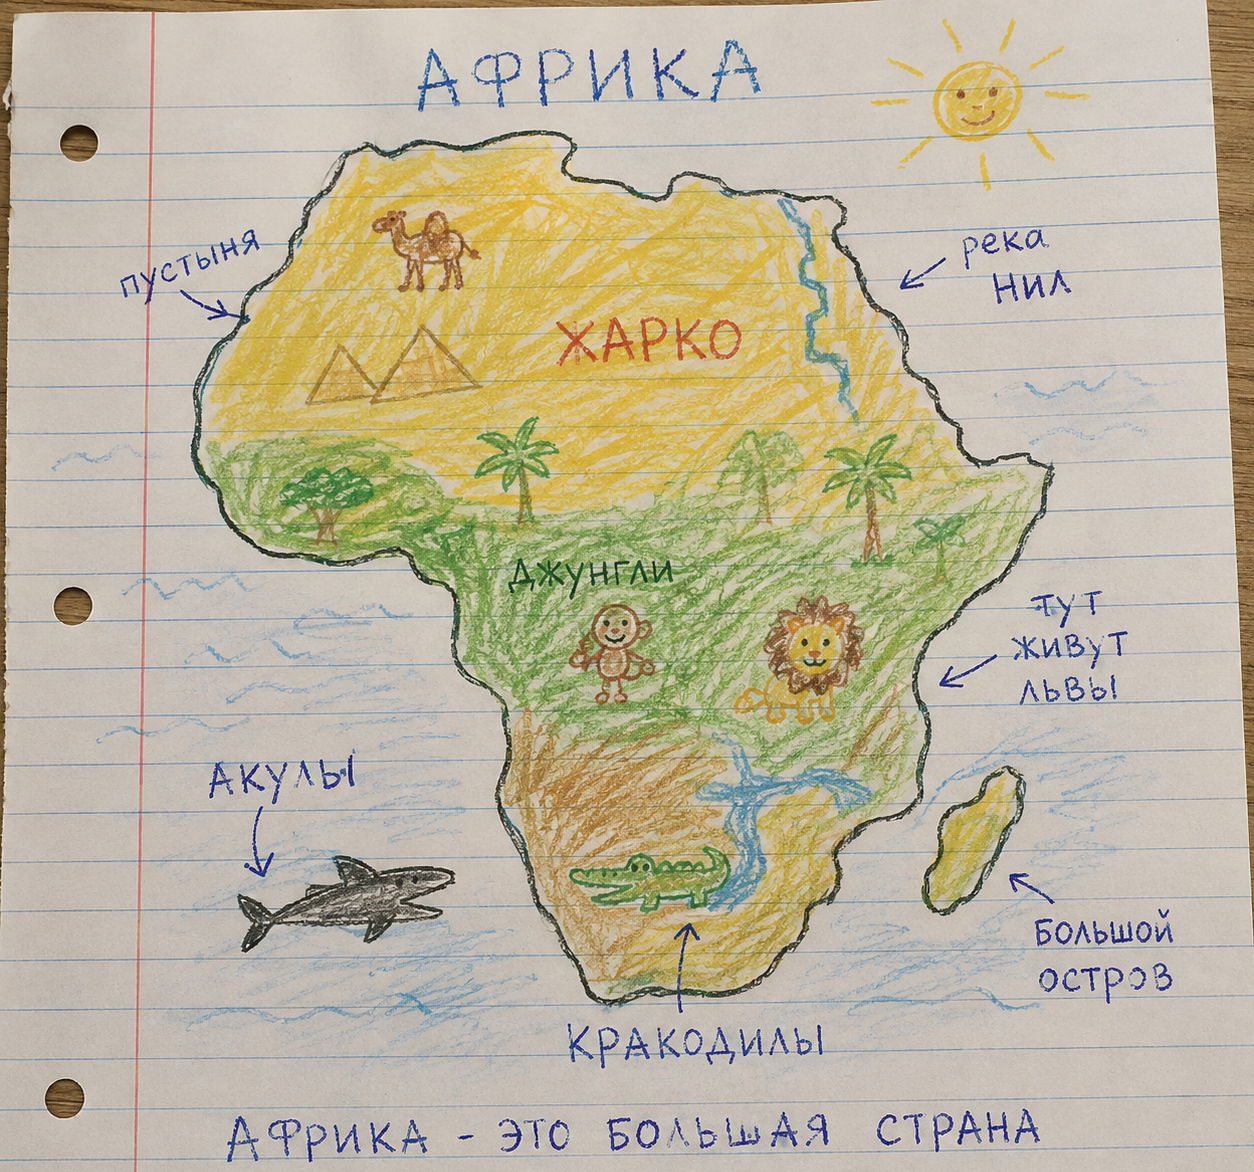 АФРИКА
пустыня
река
Нил
ЖАРКО
ДЖУНГЛИ
тут
живут
львы
АКУЛЫ
Большой
остров
КРАКОДИЛЫ
АФРИКА - ЭТО БОЛЬШАЯ СТРАНА